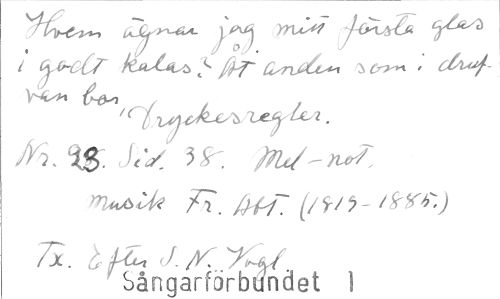 Hvem ägnar jag mitt första glas
i godt kalas? Åt anden som i druf-
van bor,
Dryckesregler.
Nr. 28. Sid. 38. Mel-not.
musik Fr. Abt. (1819-1885.)
Tx. Efter J. N. Vogl
Sångarförbundet 1